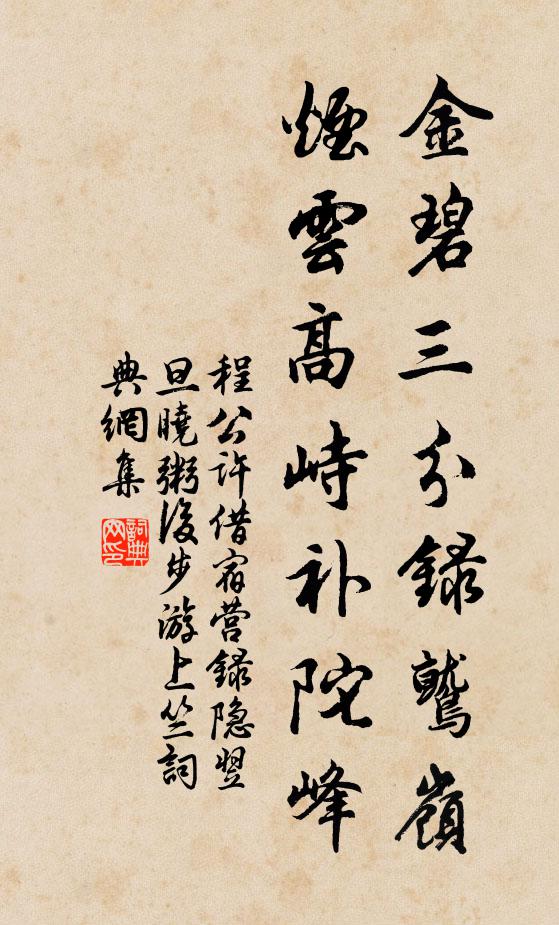 金碧三分録鷲嶺
煙雲高峙补陀峰
程公许借宿营録隐翌
旦曉粥後步游上竺詞
典網集
詞典网印